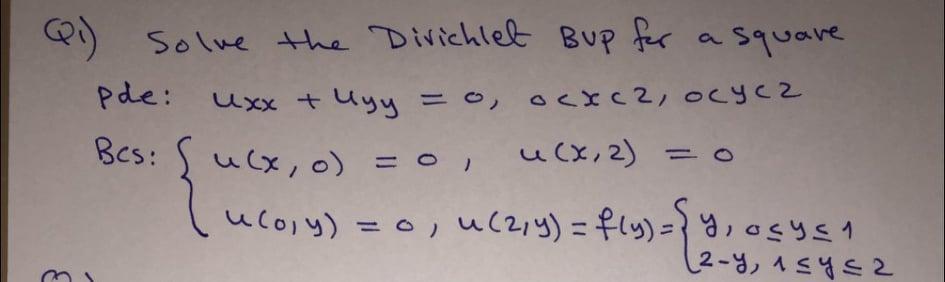 Q1) Solve the Dirichlet BVP for a square
pde: uxx + uyy = 0, 0<x<2, 0<y<2
Bcs: { u(x,0) = 0, u(x,2) = 0
u(0,y) = 0, u(2,y) = f(y) = { y, 0≤y≤1
2-y, 1≤y≤2